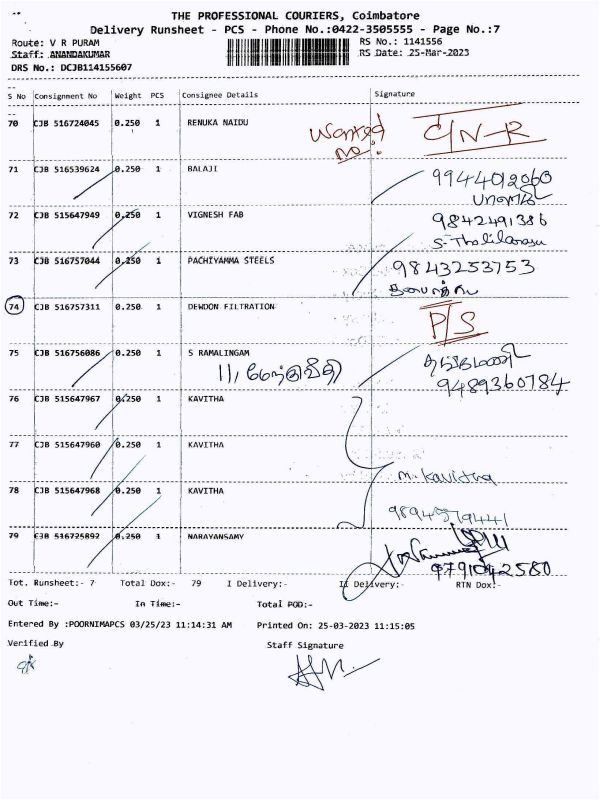 THE PROFESSIONAL COURIERS, Coimbatore
Delivery Runsheet - PCS - Phone No.:0422-3505555 - Page No.:7
Route: V R PURAM RS No.: 1141556
Staff: ANANDAKUMAR RS Date: 25-Mar-2023
DRS No.: DCJB114155607
S No Consignment No Weight PCS Consignee Details Signature
70 CJB 516724045 0.250 1 RENUKA NAIDU Wanted No: C/N-R
71 CJB 516539624 0.250 1 BALAJI 9944012060
72 CJB 515647949 0.250 1 VIGNESH FAB 9842491386
S. Thalilarasu
73 CJB 516757044 0.250 1 PACHIYAMMA STEELS 9843253753
74 CJB 516757311 0.250 1 DEWDON FILTRATION P/S
75 CJB 516756086 0.250 1 S RAMALINGAM
9489360784
76 CJB 515647967 0.250 1 KAVITHA
77 CJB 515647960 0.250 1 KAVITHA
M. Kavitha
78 CJB 515647968 0.250 1 KAVITHA
79 CJB 516725892 0.250 1 NARAYANSAMY
9791042580
Tot. Runsheet:- 7 Total Dox:- 79 I Delivery:- II Delivery:- RTN Dox:-
Out Time:- In Time:- Total POD:-
Entered By :POORNIMAPCS 03/25/23 11:14:31 AM Printed On: 25-03-2023 11:15:05
Verified By Staff Signature